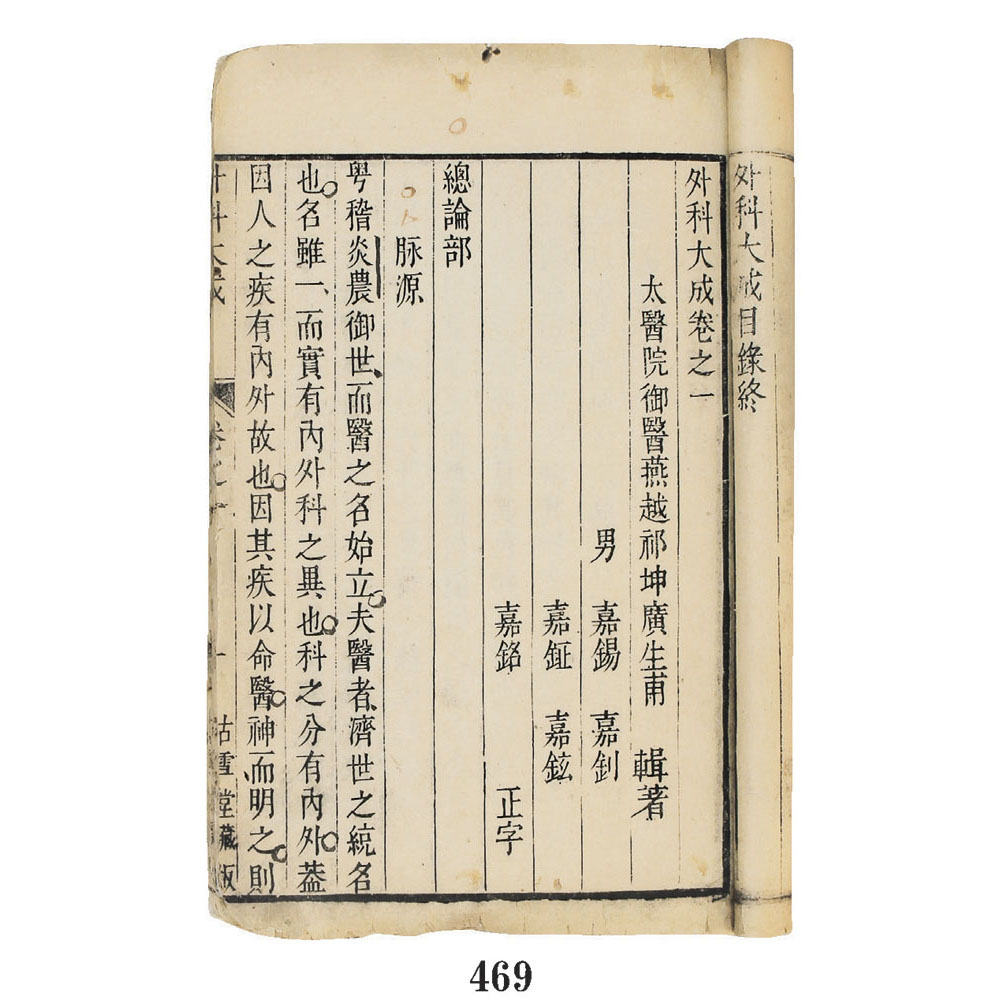 外科大成目錄終
外科大成卷之一
太醫院御醫燕越祁坤廣生甫 輯著
男 嘉錫 嘉釗
嘉鉦 嘉鉉
嘉銘 正字
總論部
脉源
粤稽炎農御世、而醫之名始立。夫醫者、濟世之統名
也。名雖一、而實有內外科之異也。科之分有內外。葢
因人之疾有內外故也。因其疾以命醫。神而明之。則
外科大成 卷之一 一 古雪堂藏板
469